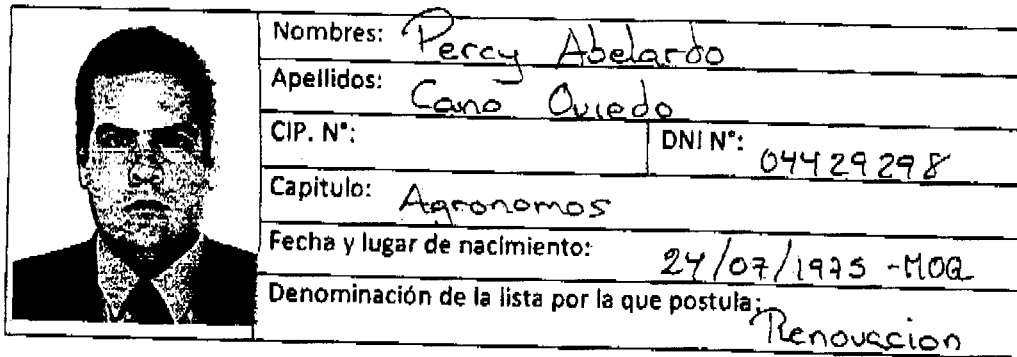 Nombres: Percy Abelardo
Apellidos: Cano Oviedo
CIP. N°:
DNI N°: 04429298
Capitulo: Agronomos
Fecha y lugar de nacimiento: 24/07/1975 - MOQ
Denominación de la lista por la que postula: Renovacion